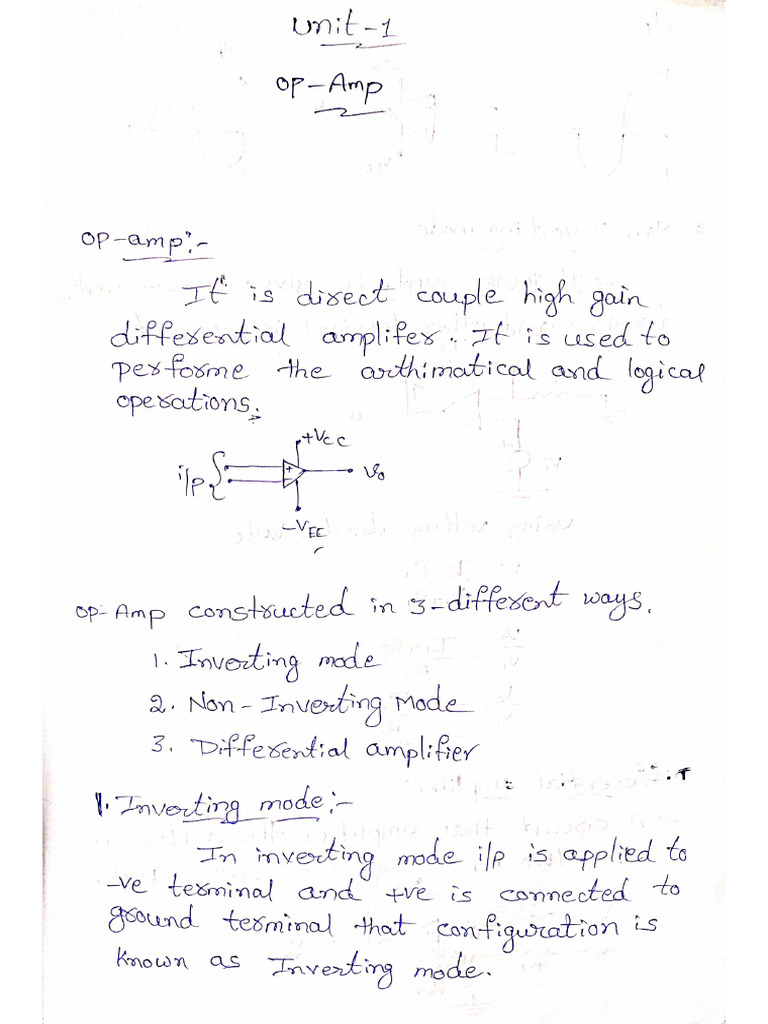 Unit-1
OP-Amp
OP-amp:-
It is direct couple high gain
differential amplifer. It is used to
performe the arthimatical and logical
operations.
+VCC
i/p
+
-
Vo
-VEE
OP-Amp constructed in 3-different ways.
1. Inverting mode
2. Non-Inverting Mode
3. Differential amplifier
1. Inverting mode:-
In inverting mode i/p is applied to
-ve terminal and +ve is connected to
ground terminal that configuration is
known as Inverting mode.